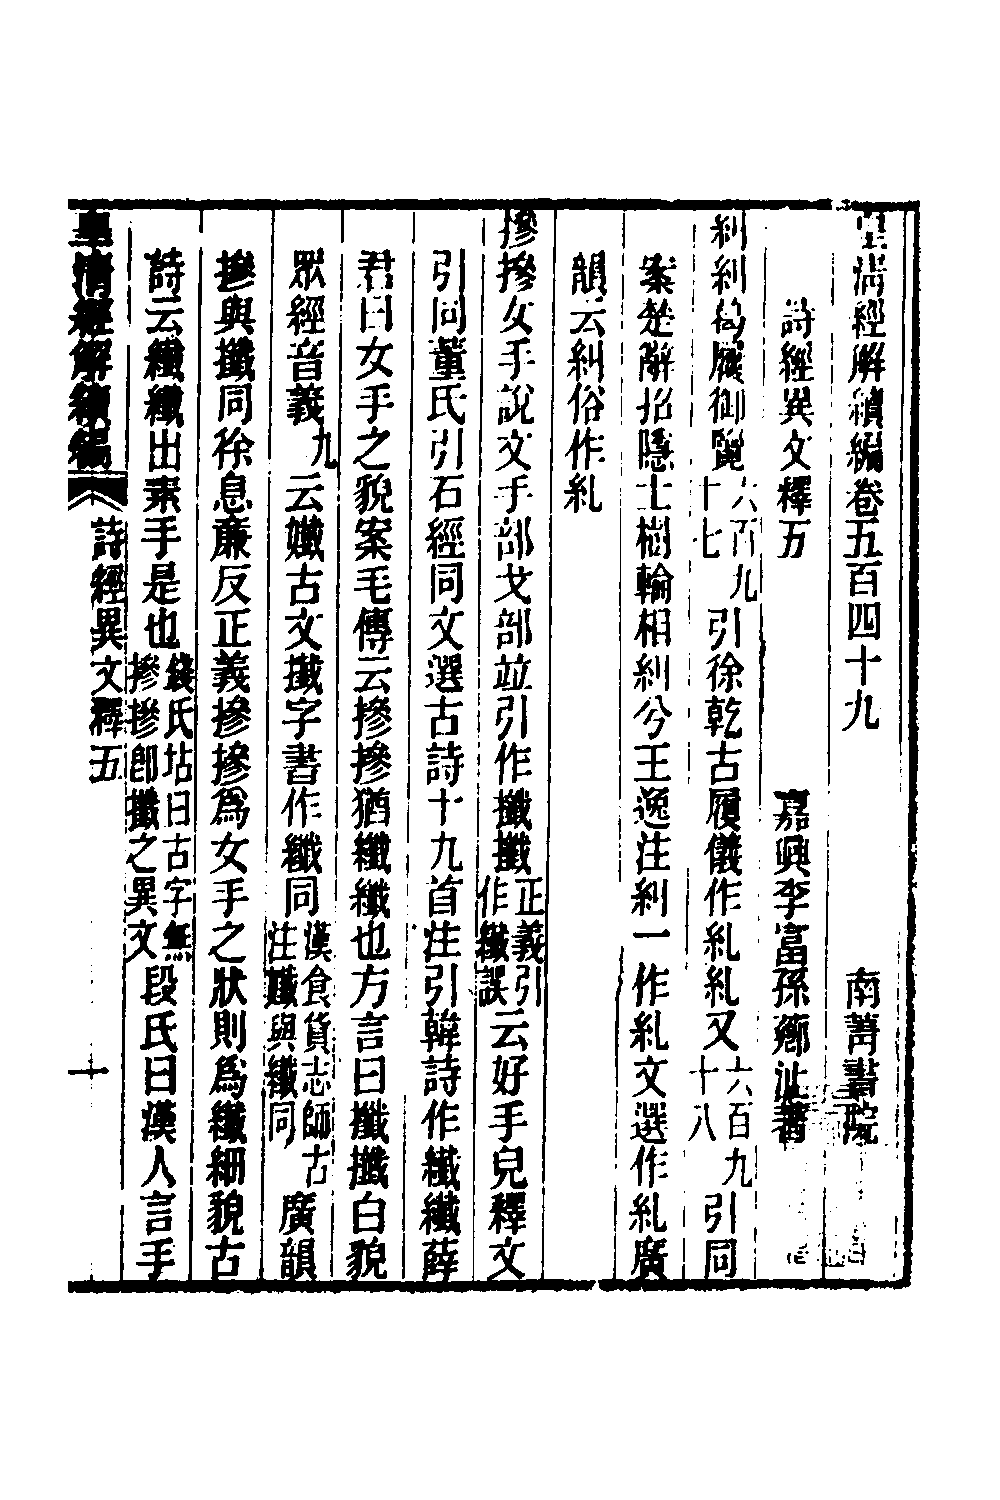 皇清經解續編卷五百四十九 南菁書院
詩經異文釋五 嘉興李富孫薌沚著
糾糾葛屨御覽六百九十七引徐乾古履儀作糺糺又六百九十八引同
案楚辭招隱士樹輪相糾兮王逸注糾一作糺文選作糺廣
韻云糾俗作糺
摻摻女手說文手部戈部竝引作攕攕正義引作纖誤云好手皃釋文
引同董氏引石經同文選古詩十九首注引韓詩作纖纖薛
君曰女手之貌案毛傳云摻摻猶纖纖也方言曰攕攕白貌
眾經音義九云孅古文攕字書作纖同漢食貨志師古注孅與纖同廣韻
摻與攕同徐息廉反正義摻摻爲女手之狀則爲纖細貌古
詩云纖纖出素手是也錢氏坫曰古字無摻摻卽攕之異文段氏曰漢人言手
皇清經解續編 詩經異文釋五 十